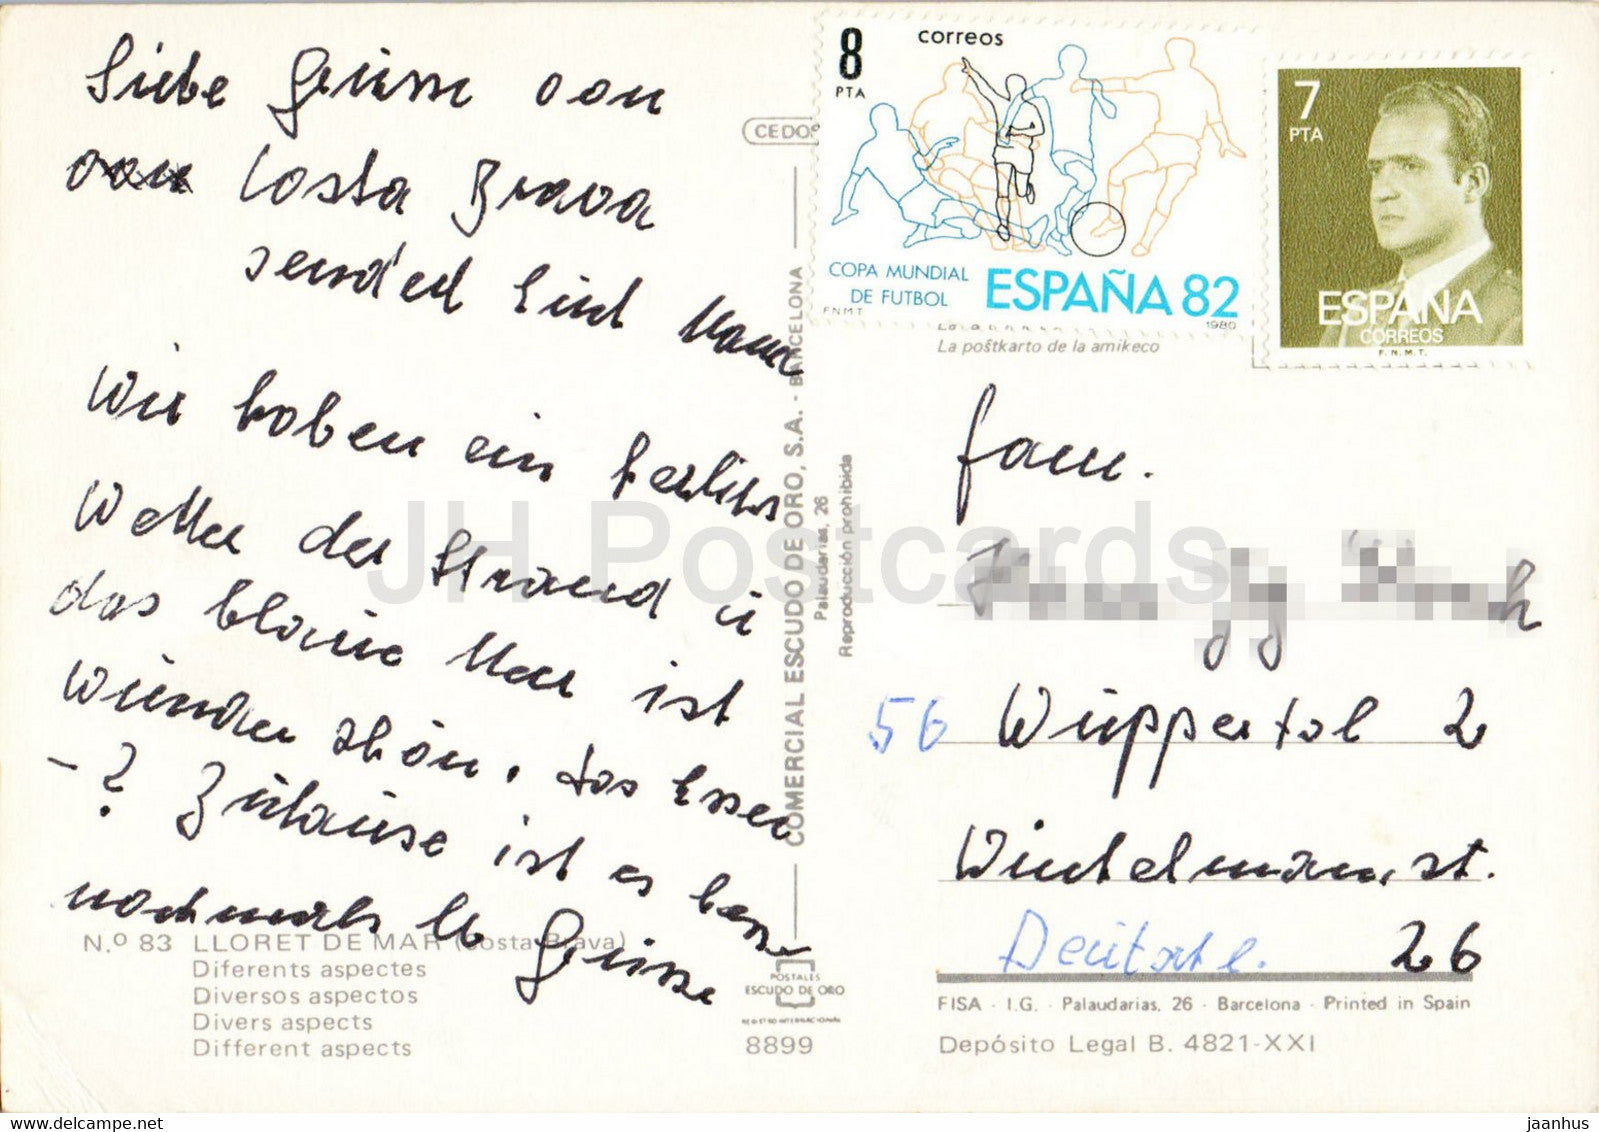 Liebe Grüsse von
von Costa Brava
sendet Euch Mama
Wir haben ein herliches
Wetter der Strand u
das blaue Meer ist
Wunderschön. das Essen
- ? Zuhause ist es besser
nochmals lb Grüsse
Nº 83 LLORET DE MAR (Costa Brava)
Diferents aspectes
Diversos aspectos
Divers aspects
Different aspects
CEDOS
COMERCIAL ESCUDO DE ORO, S.A. - BARCELONA
Palaudarias, 26
Reproducción prohibida
POSTALES
ESCUDO DE ORO
REGISTRO INTERNACIONAL
8899
8
PTA
correos
COPA MUNDIAL
DE FUTBOL
ESPAÑA 82
FNMT
1980
7
PTA
ESPAÑA
CORREOS
F.N.M.T.
La poŝtkarto de la amikeco
Fam.
56 Wuppertal 2
26
FISA - I.G. - Palaudarias, 26 - Barcelona - Printed in Spain
Depósito Legal B. 4821-XXI
JH Postcards
delcampe.net
jaanhus